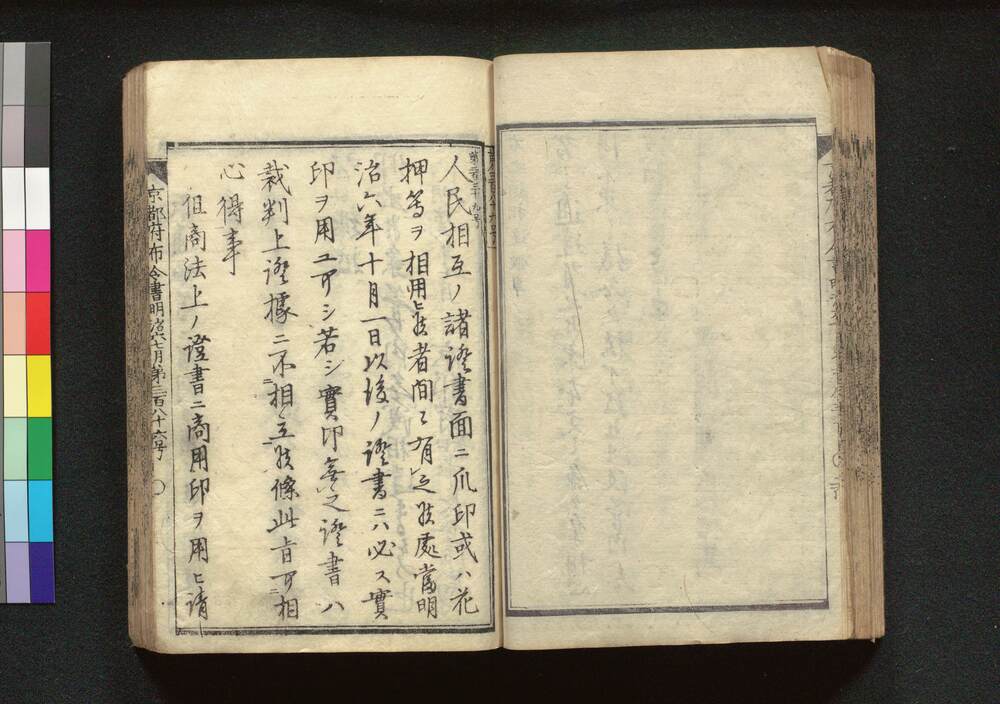 第二百三十九号
人民相互ノ諸證書面ニ爪印或ハ花
押等ヲ相用ヒ候者間々有之候處當明
治六年十月一日以後ノ證書ニハ必ス實
印ヲ用ユ可シ若シ實印無之證書ハ
裁判上證據ニ不相立候條此旨可相
心得事
但商法上ノ證書ニ商用印ヲ用ヒ請
京都府布令書明治六七月第三百八十六号